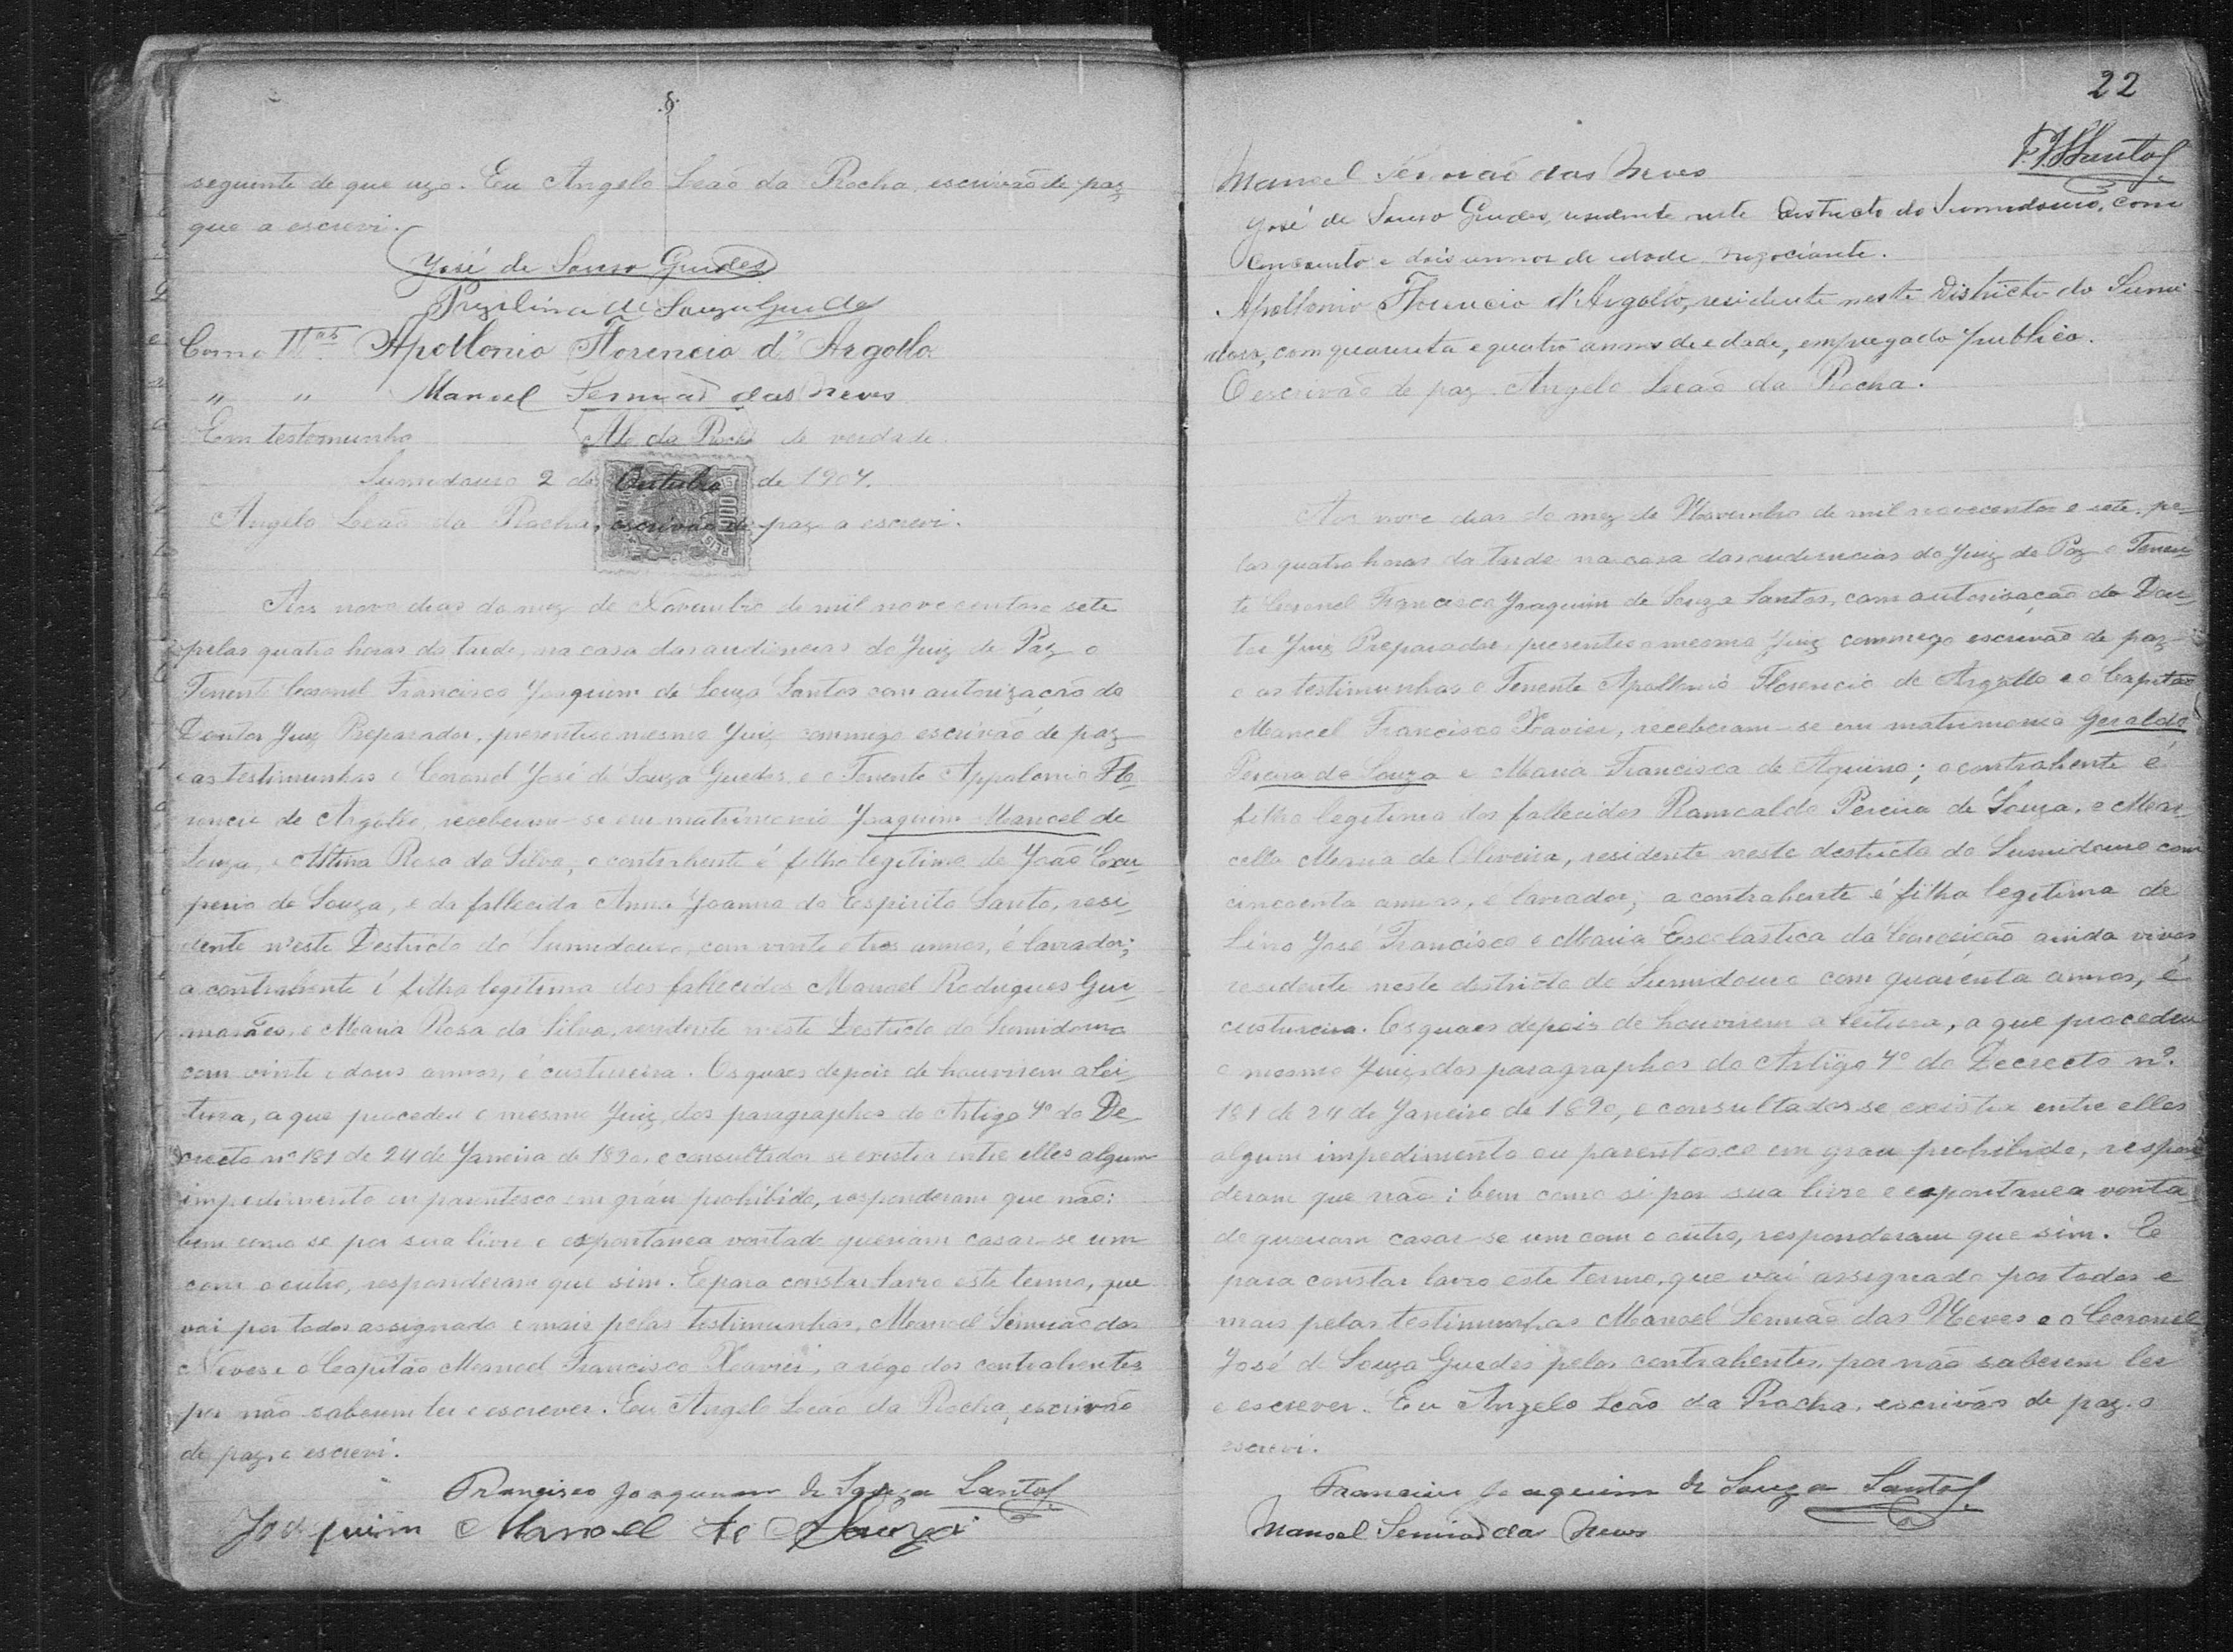 seguinte de que uzo. Eu Angelo Leão da Rocha, escrivão de paz
que a escrevi.
José de Souza Guedes
de Souza Guedes
Como Ttas Apollonio Florencio d'Argollo
" " Manoel Semião das Neves
Em testemunho ALe da Rocha de verdade.
Sumidouro 2 de Outubro de 1907.
Angelo Leão da Rocha, escrivão de paz a escrevi.
Aos nove dias do mez de Novembro de mil nove centos e sete
pelas quatro horas da tarde, na casa das audiencias do Juiz de Paz o
Tenente Coronel Francisco Joaquim de Souza Santos com autorização do
Doutor Juiz Preparador, presentes o mesmo Juiz commego escrivão de paz
e as testimunhas o Coronel José de Souza Guedes, e o Tenente Appolonio Flo-
rencio de Argollo, receberam-se em matrimonio Joaquim Manoel de
Souza, e Rosa da Silva, o contrahente é filho legitimo de João Exu-
perio de Souza, e da fallecida Anna Joanna do Espirito Santo, resi-
dente n'este Destricto do Sumidouro, com vinte e tres annos, é lavrador;
a contrahente é filha legitima dos fallecidos Manoel Rodrigues Gui-
marães, e Maria Rosa da Silva, residente n'este Destricto do Sumidouro
com vinte e dous annos, é custureira. Os quaes depois de houvirem a lei-
tura, a que procedeu o mesmo Juiz, dos paragraphos do Artigo 7º do De-
creeto nº 181 de 24 de Janeiro de 1890, e consultados se existia entre elles algum
impedimento ou parentesco em gráu prohibido, responderam que não:
bem como se por sua livre e espontanea vontade queriam casar-se um
com o outro, responderam que sim. E para constar lavro este termo, que
vai por todos assignado e mais pelas testimunhas, Manoel Semião das
Neves e o Capitão Manoel Francisco Xavier, a rôgo dos contrahentes
por não saberem ler e escrever. Eu Angelo Leão da Rocha, escrivão
de paz, o escrevi.
Francisco Joaquim de Souza Santos
Joaquim Manoel de Souza
22
F. J. S Santos
Manoel Semião das Neves
José de Souza Guedes, residente neste Destricto do Sumidouro, com
Concoenta e dois annos de edade negociante.
Apollonio Florencio d'Argollo, residente neste Districto do Sumi-
douro, com quarenta e quatro annos de edade, empregado publico.
O escrivão de paz. Angelo Leão da Rocha.
Aos nove dias do mez de Novembro de mil novecentos e sete, pe-
las quatro horas da tarde na casa das audiencias do Juiz de Paz o Tenen-
te Coronel Francisco Joaquim de Souza Santos, com autorisação do Dou-
tor Juiz Preparador, presentes o mesmo Juiz commego escrivão de paz
e as testimunhas o Tenente Apollonio Florencio de Argollo e o Capitão
Manoel Francisco Xavier, receberam-se em matrimonio Geraldo
Pereira de Souza e Maria Francisca de Aquino; o contrahente é
filho legitimo dos fallecidos Pereira de Souza, e Mar-
cella Maria de Oliveira, residente neste destricto do Sumidouro com
cincoenta annos, é lavrador; a contrahente é filha legitima de
Lino José Francisco e Maria Escolastica da Conceição ainda vivos
residente neste destricto do Sumidouro com quarenta annos, é
custureira. Os quaes depois de houvirem a leitura, a que procedeu
o mesmo Juiz, dos paragraphos do Artigo 7º do Decrecto nº.
181 de 24 de Janeiro de 1890, e consultados se existia entre elles
algum impedimento ou parentesco em grau prohibido, respon-
deram que não: bem como si por sua livre e espontanea vonta-
de queriam casar-se um com o outro, responderam que sim. E
para constar lavro este termo, que vai assignado por todos e
mais pelas testimunhas Manoel Semião das Neves e o Coronel
José de Souza Guedes pelos contrahentes, por não saberem ler
e escrever. Eu Angelo Leão da Rocha, escrivão de paz, o
escrevi.
Francisco Joaquim de Souza Santos
Manoel Semião das Neves